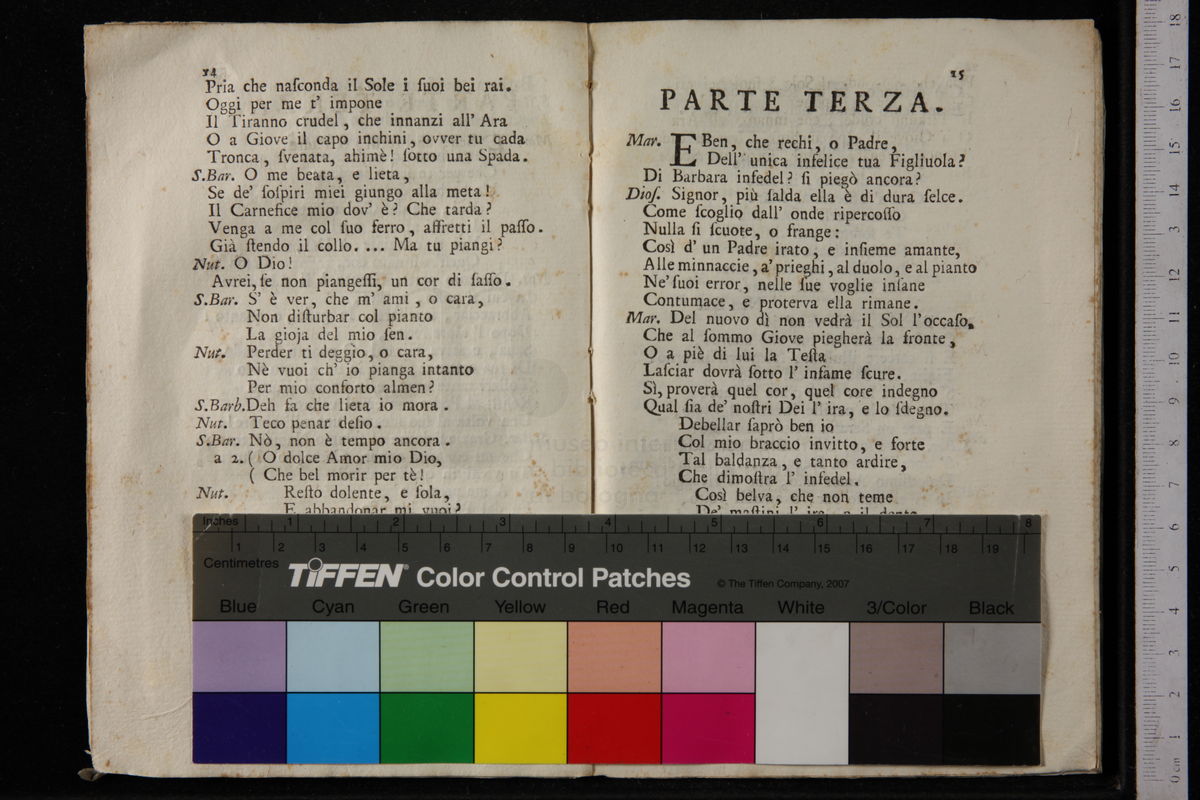 14
Pria che naſconda il Sole i ſuoi bei rai.
Oggi per me t' impone
Il Tiranno crudel, che innanzi all' Ara
O a Giove il capo inchini, ovver tu cada
Tronca, ſvenata, ahimè! ſotto una Spada.
S.Bar. O me beata, e lieta,
Se de' ſoſpiri miei giungo alla meta!
Il Carnefice mio dov' è? Che tarda?
Venga a me col ſuo ferro, affretti il paſſo.
Già ſtendo il collo. ... Ma tu piangi?
Nut. O Dio!
Avrei, ſe non piangeſſi, un cor di ſaſſo.
S.Bar. S' è ver, che m' ami, o cara,
Non diſturbar col pianto
La gioja del mio ſen.
Nut. Perder ti deggio, o cara,
Nè vuoi ch' io pianga intanto
Per mio conforto almen?
S.Barb. Deh fa che lieta io mora.
Nut. Teco penar deſio.
S.Bar. Nò, non è tempo ancora.
a 2. ( O dolce Amor mio Dio,
( Che bel morir per tè!
Nut. Reſto dolente, e ſola,
E abbandonar mi vuoi?
15
PARTE TERZA.
Mar. E Ben, che rechi, o Padre,
Dell' unica infelice tua Figliuola?
Di Barbara infedel? ſi piegò ancora?
Dioſ. Signor, più ſalda ella è di dura ſelce.
Come ſcoglio dall' onde ripercoſſo
Nulla ſi ſcuote, o frange:
Così d' un Padre irato, e inſieme amante,
Alle minnaccie, a' prieghi, al duolo, e al pianto
Ne' ſuoi error, nelle ſue voglie inſane
Contumace, e proterva ella rimane.
Mar. Del nuovo dì non vedrà il Sol l'occaſo,
Che al ſommo Giove piegherà la fronte,
O a piè di lui la Teſta
Laſciar dovrà ſotto l' infame ſcure.
Sì, proverà quel cor, quel core indegno
Qual ſia de' noſtri Dei l' ira, e lo ſdegno.
Debellar ſaprò ben io
Col mio braccio invitto, e forte
Tal baldanza, e tanto ardire,
Che dimoſtra l' infedel.
Così belva, che non teme
De' maſtini l' ira, e il dente
Inches 1 2 3 4 5 6 7 8
Centimetres 1 2 3 4 5 6 7 8 9 10 11 12 13 14 15 16 17 18 19
TIFFEN® Color Control Patches © The Tiffen Company, 2007
Blue Cyan Green Yellow Red Magenta White 3/Color Black
0 cm 1 2 3 4 5 6 7 8 9 10 11 12 13 14 15 16 17 18